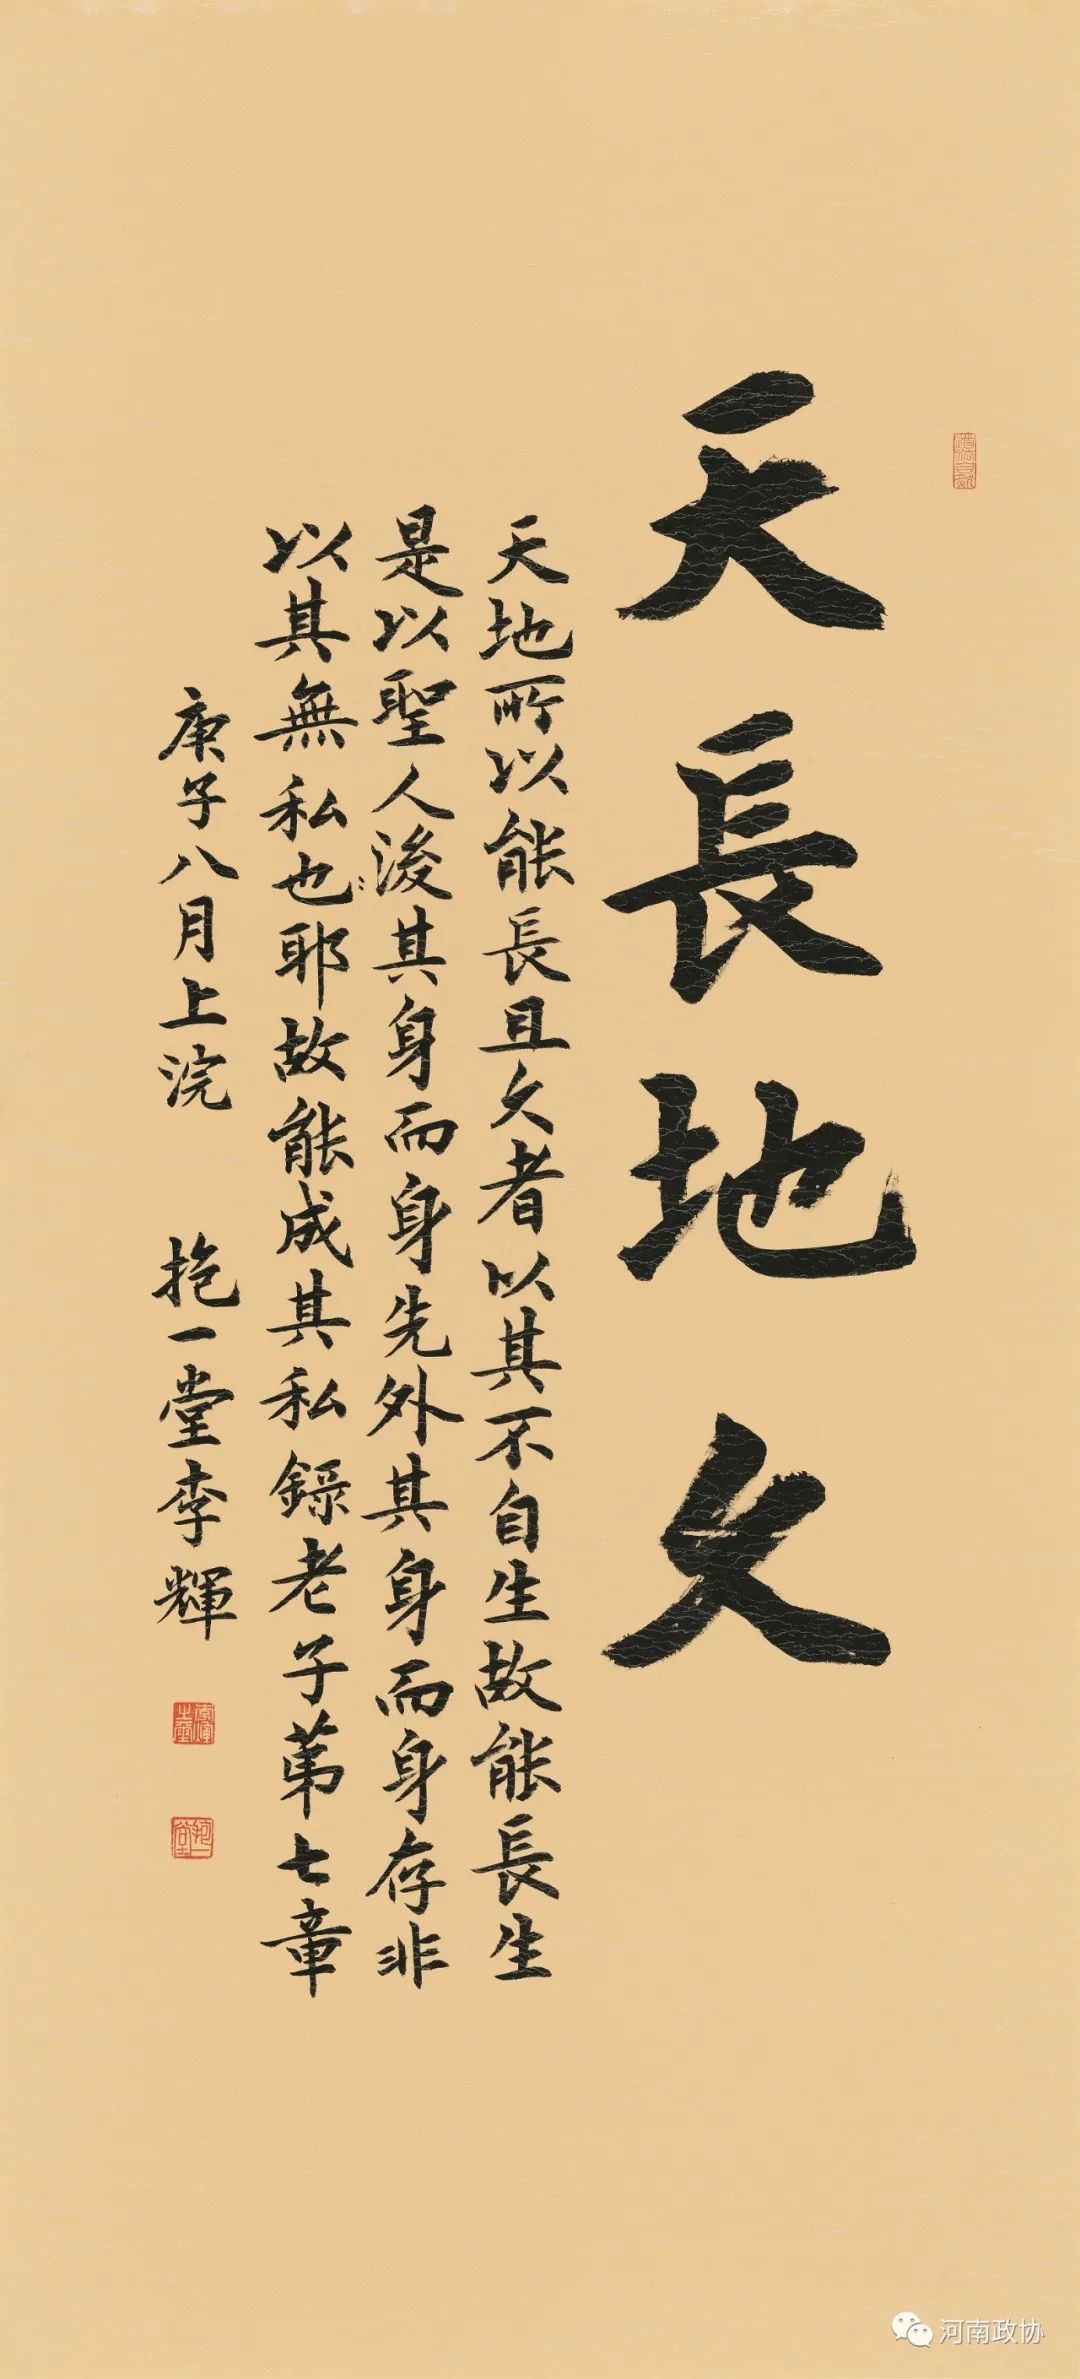 天長地久
天地所以能長且久者以其不自生故能長生
是以聖人後其身而身先外其身而身存非
以其無私也耶故能成其私錄老子第七章
庚子八月上浣 抱一堂李輝
抱一堂
河南政协